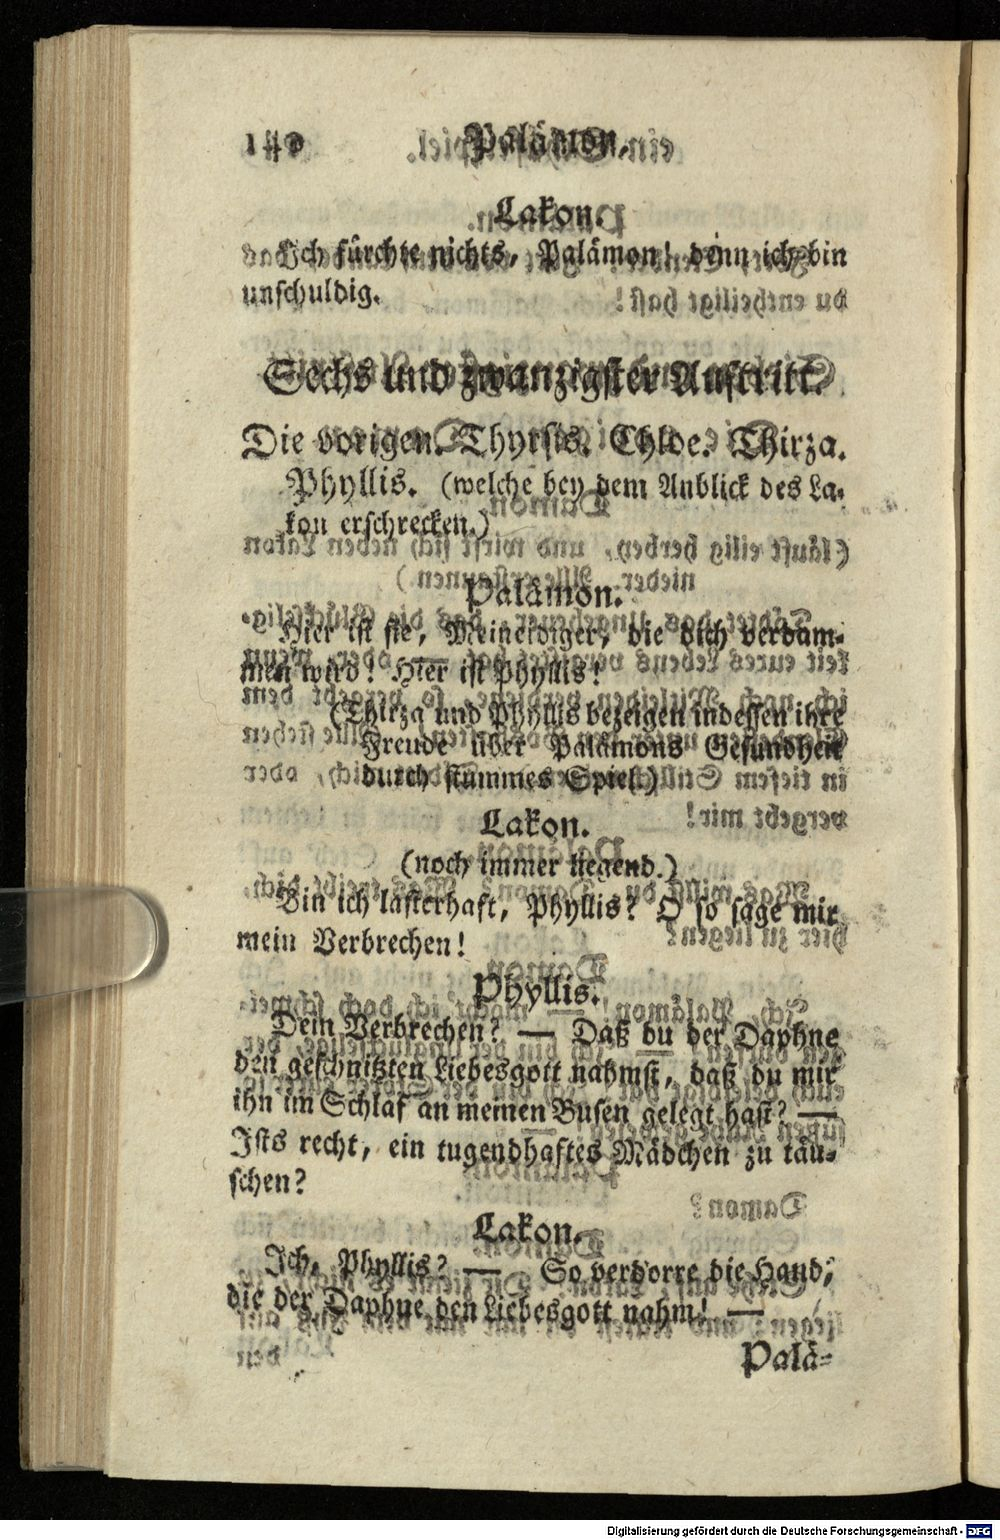 140 Palämon,
Lakon.
Ich fürchte nichts, Palämon! denn ich bin
unschuldig.
Sechs und zwanzigster Auftritt.
Die vorigen. Thyrsis. Chloe. Thirza.
Phyllis. (welche bey dem Anblick des La-
kon erschrecken.)
Palämon.
Hier ist sie, Meineidiger, die dich verdam-
men wird! Hier ist Phyllis!
(Thirza und Phyllis bezeigen indessen ihre
Freude über Palämons Gesundheit
durch stummes Spiel.)
Lakon.
(noch immer liegend.)
Bin ich lasterhaft, Phyllis? O so sage mir
mein Verbrechen!
Phyllis.
Dein Verbrechen? — Daß du der Daphne
den geschnitzten Liebesgott nahmst, daß du mir
ihn im Schlaf an meinen Busen gelegt hast? —
Ists recht, ein tugendhaftes Mädchen zu täu-
schen?
Lakon.
Ich, Phyllis? — So verdorre die Hand,
die der Daphne den Liebesgott nahm! —
Palä-
Digitalisierung gefördert durch die Deutsche Forschungsgemeinschaft - DFG